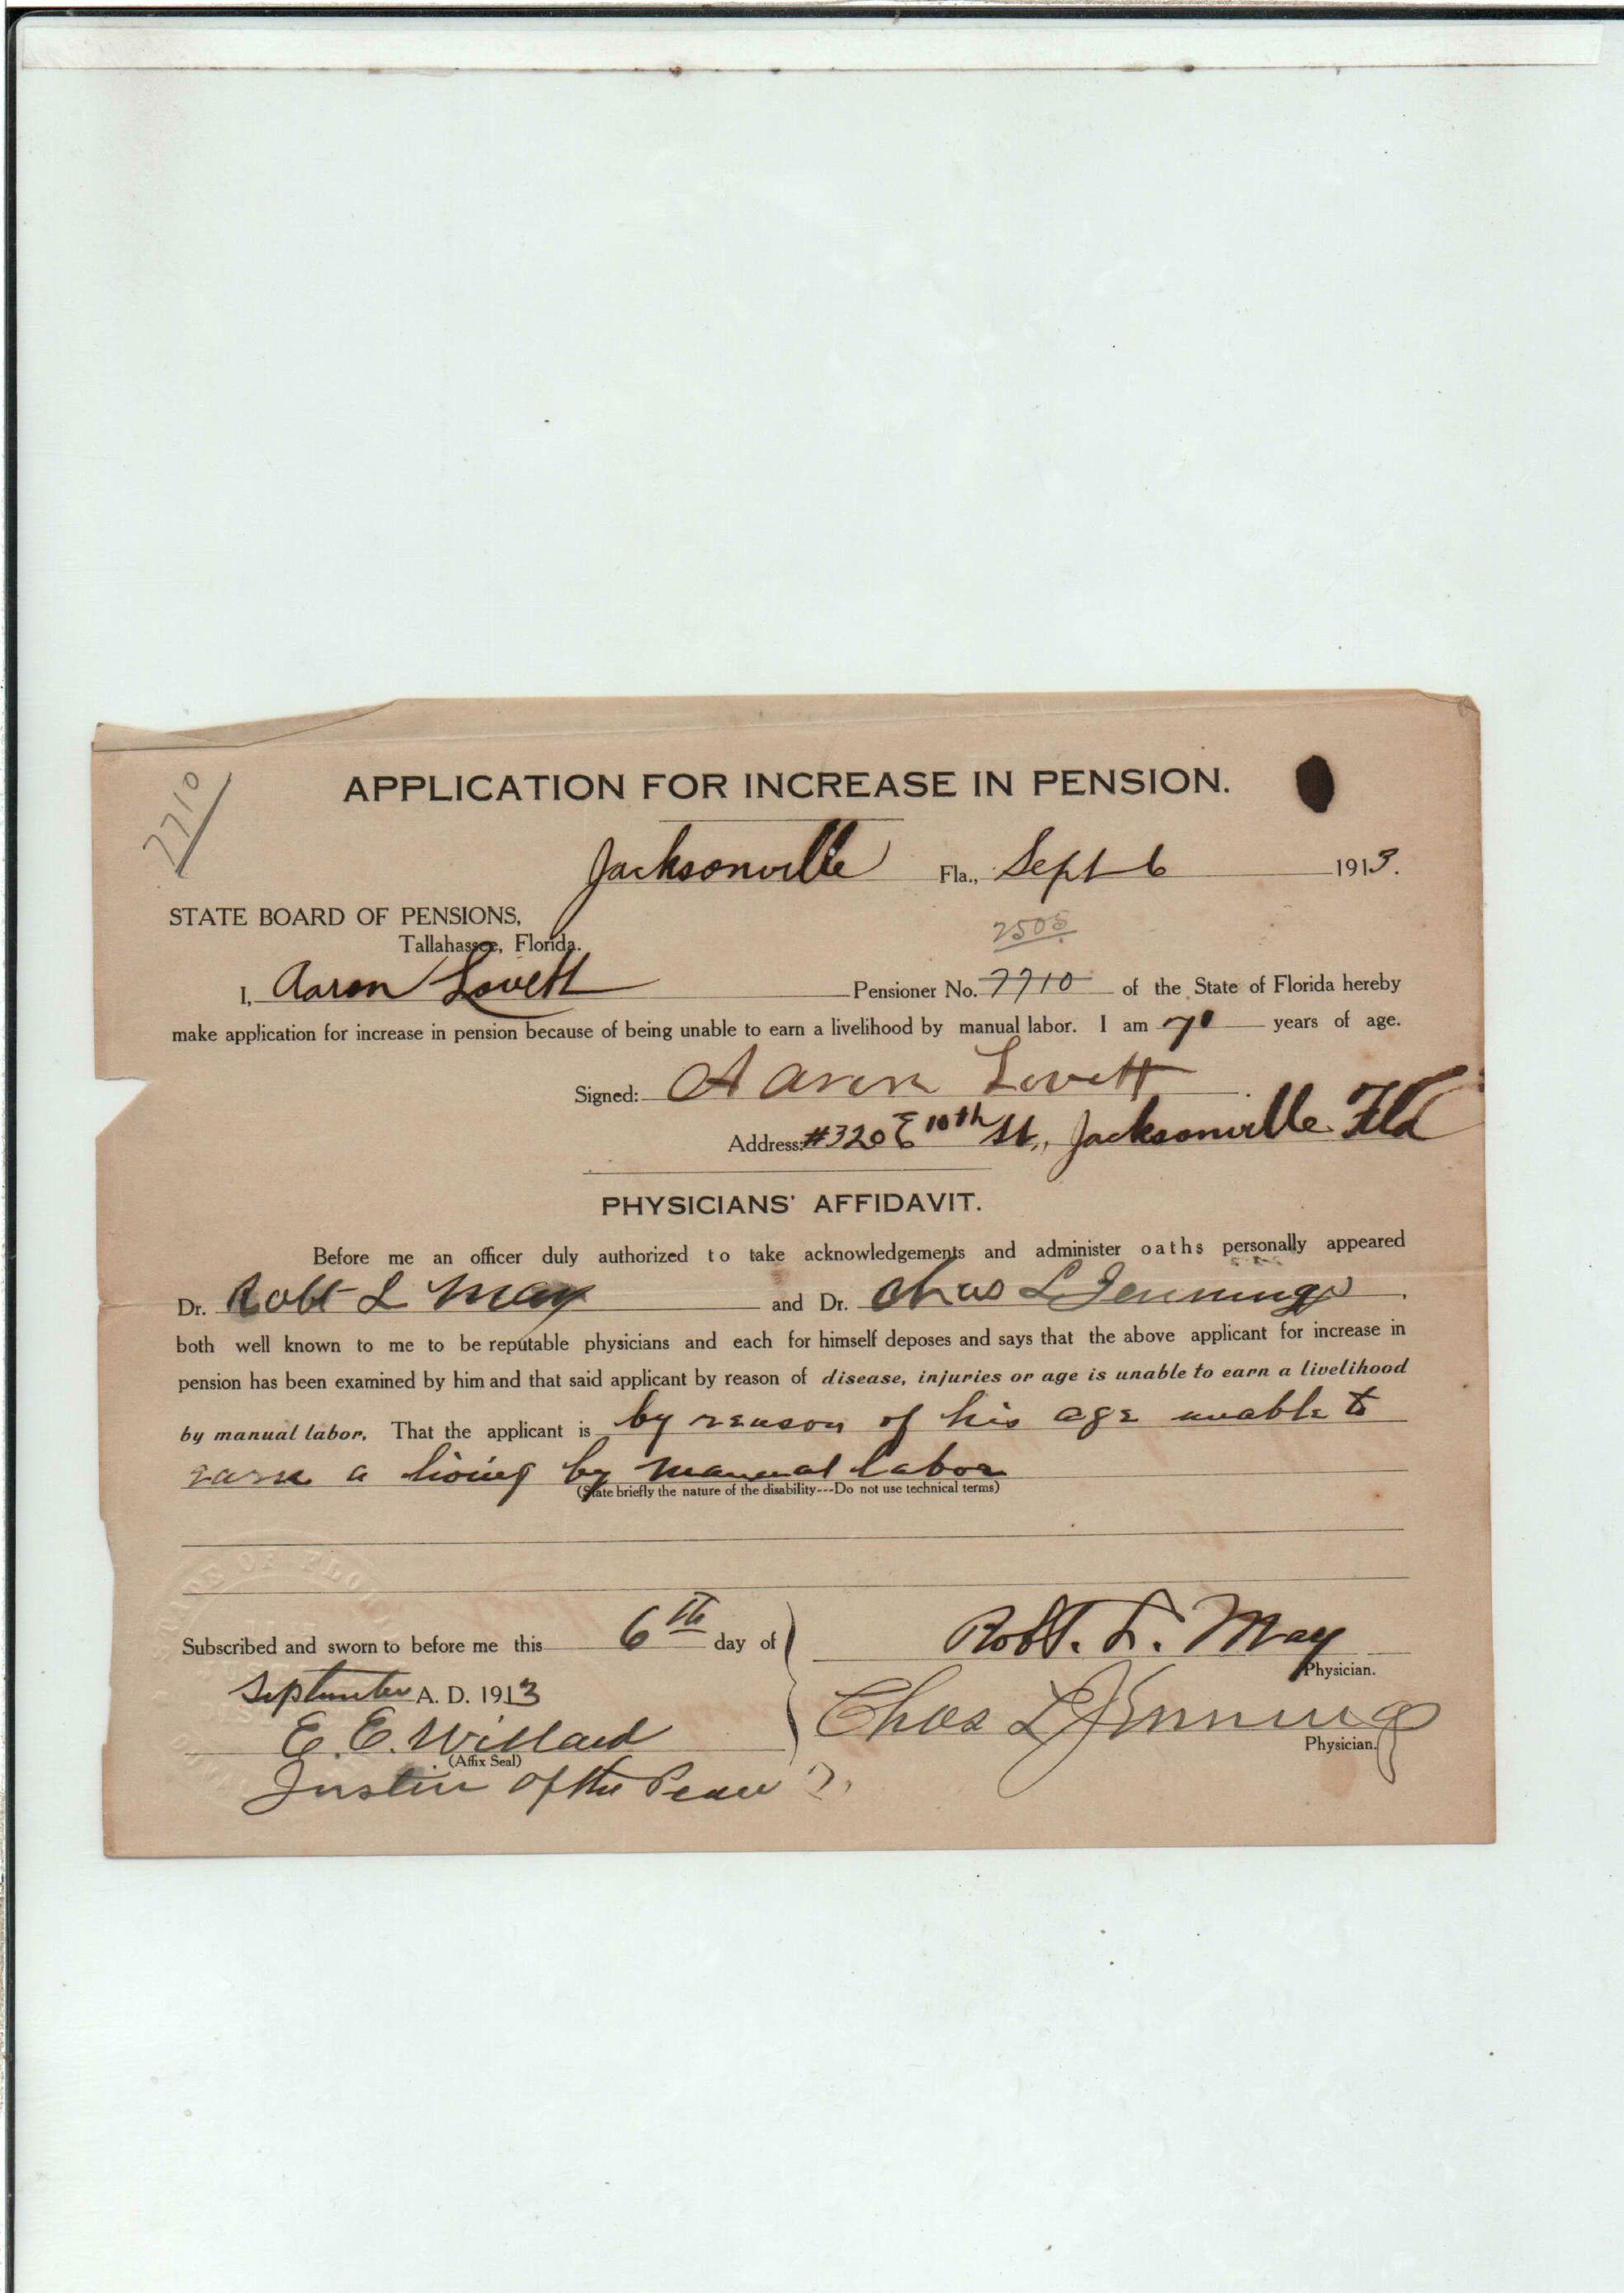 7710
APPLICATION FOR INCREASE IN PENSION.
Jacksonville Fla., Sept 6 1913.
STATE BOARD OF PENSIONS,
Tallahassee, Florida.
2505
I, Aaron Lovett Pensioner No. 7710 of the State of Florida hereby
make application for increase in pension because of being unable to earn a livelihood by manual labor. I am years of age.
Signed: Aaron Lovett
Address: #320 E 10th St., Jacksonville Fla
PHYSICIANS' AFFIDAVIT.
Before me an officer duly authorized to take acknowledgements and administer oaths personally appeared
Dr. Robt L May and Dr. Chas L Jennings.
both well known to me to be reputable physicians and each for himself deposes and says that the above applicant for increase in
pension has been examined by him and that said applicant by reason of disease, injuries or age is unable to earn a livelihood
by manual labor. That the applicant is by reason of his age unable to
earn a living by manual labor
(State briefly the nature of the disability---Do not use technical terms)
Subscribed and sworn to before me this 6th day of
Robt. L. May
Physician.
September A. D. 1913
Chas L Jennings
Physician.
E. E. Willard
(Affix Seal)
Justice of the Peace